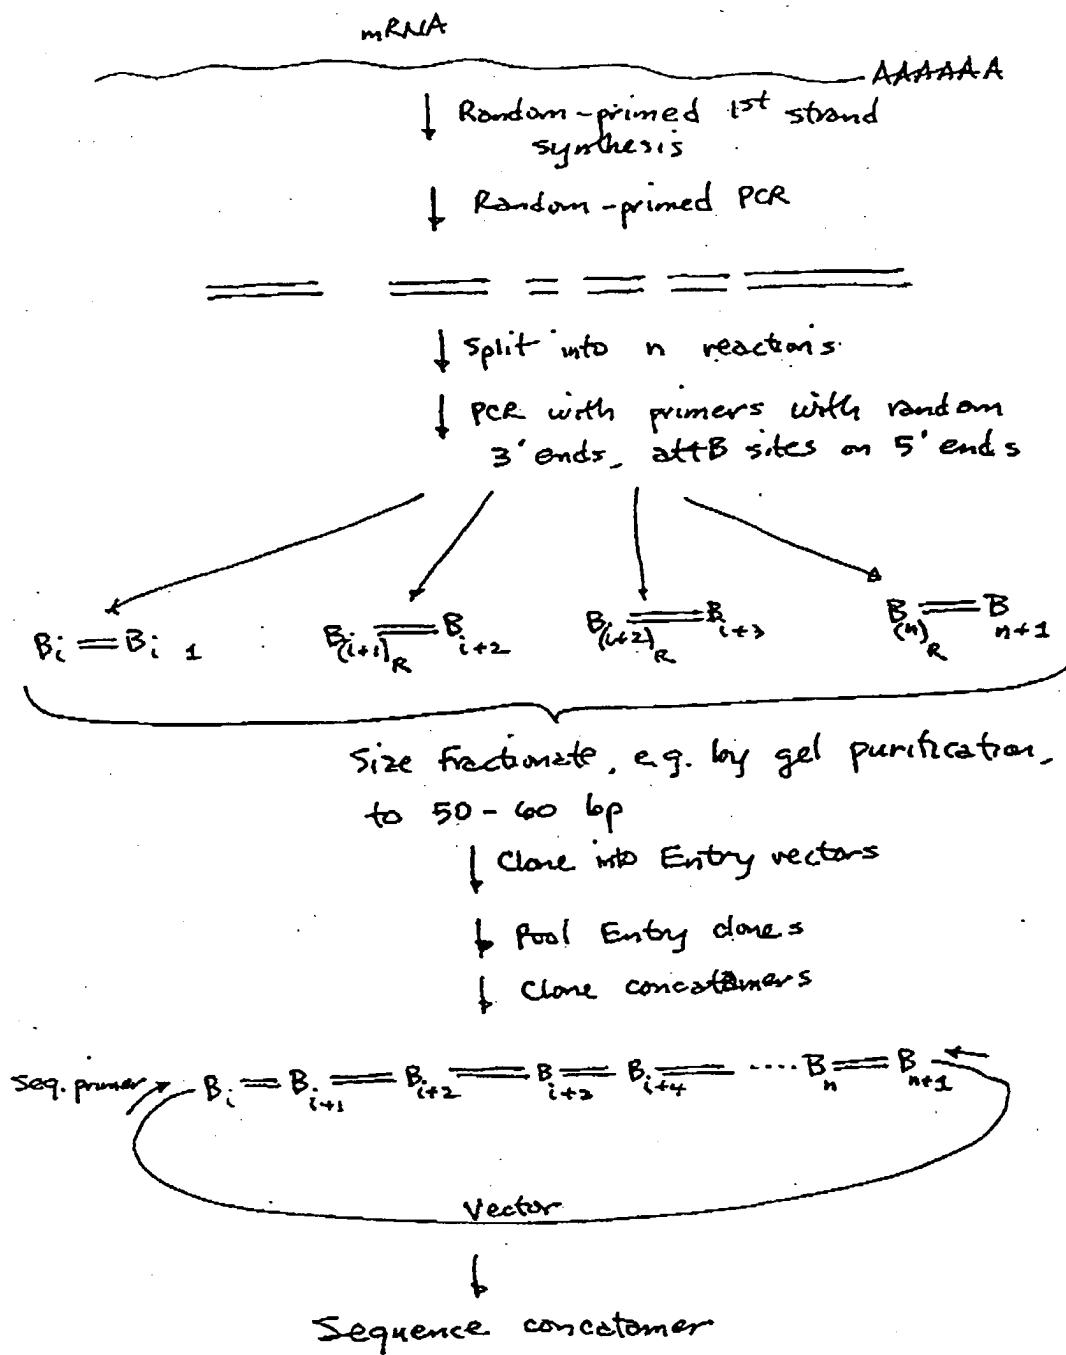 mRNA
AAAAAA
Random-primed 1st strand
synthesis
Random-primed PCR
Split into n reactions
PCR with primers with random
3' ends, attB sites on 5' ends
Bi = Bi 1 B(i+1)R = Bi+2 B(i+2)R = Bi+3 B(n)R = Bn+1
Size fractionate, e.g. by gel purification,
to 50-60 bp
Clone into Entry vectors
Pool Entry clones
Clone concatamers
Seq. primer Bi = Bi+1 = Bi+2 = Bi+3 = Bi+4 = ....Bn = Bn+1
Vector
Sequence concatomer